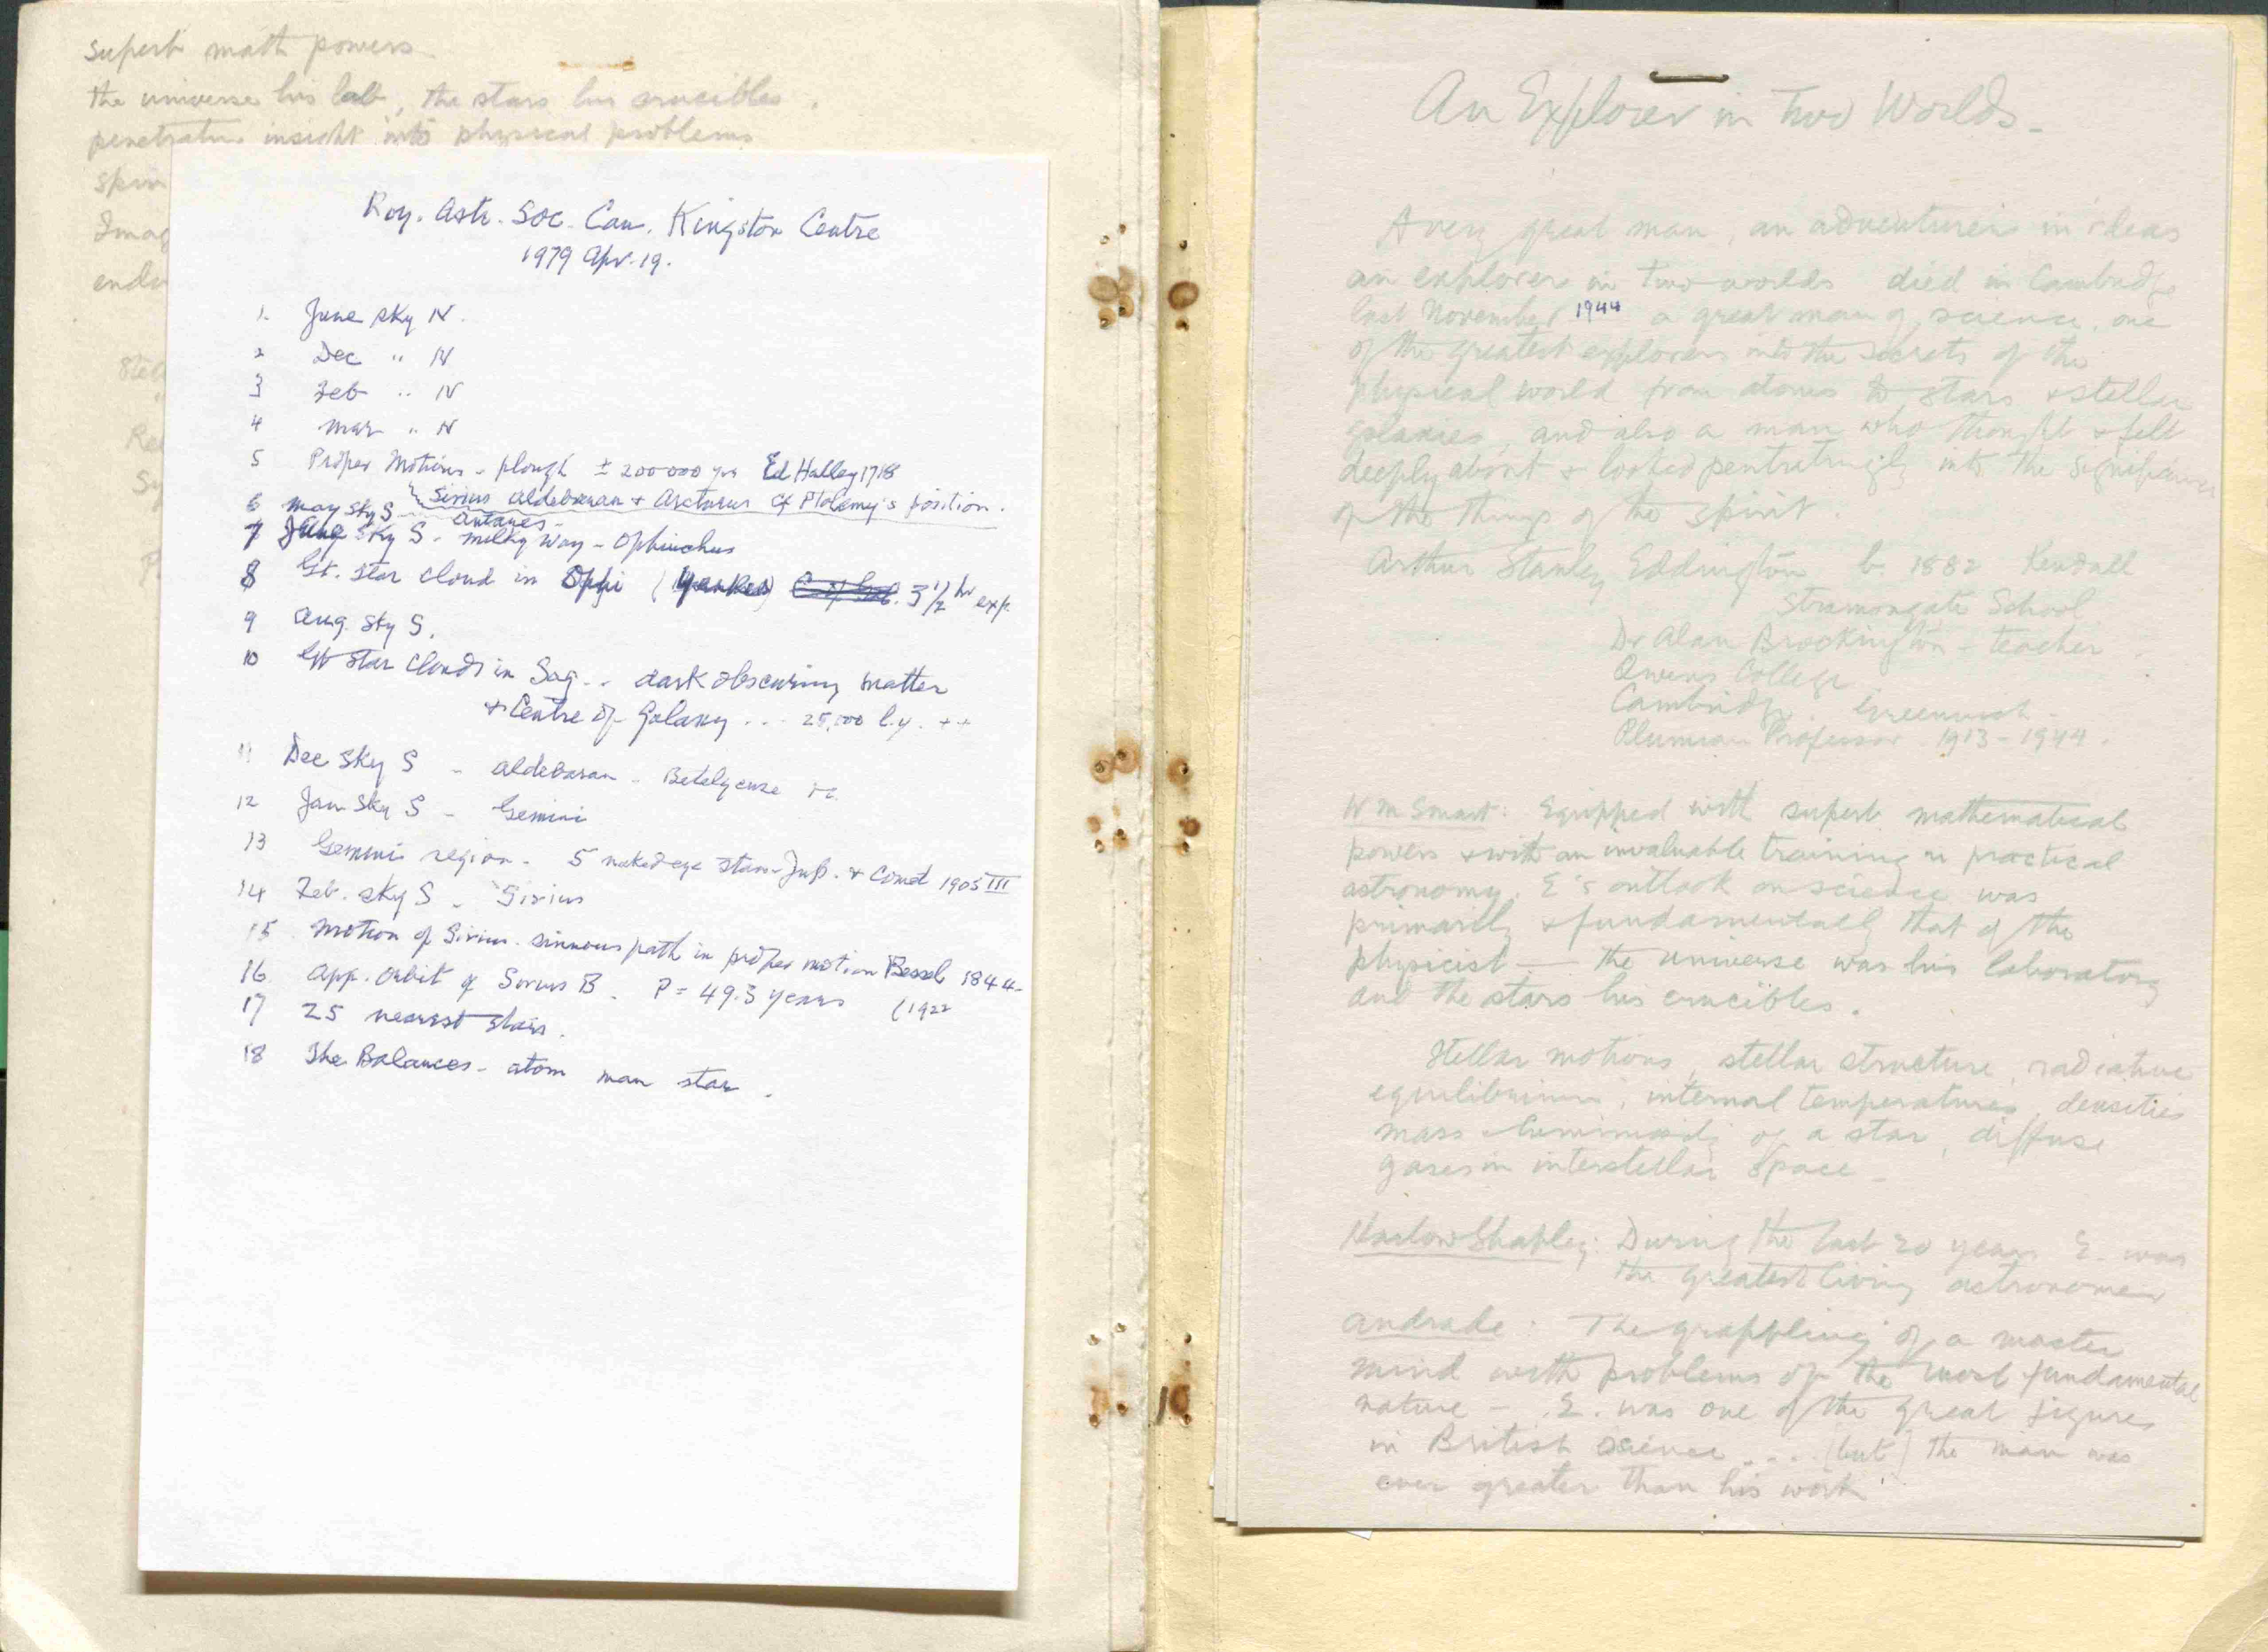 superb math powers
the universe his lab, the stars his crucibles.
penetrating insight into physical problems
Imag
Roy. Astr. Soc. Can. Kingston Centre
1979 Apr. 19.
1. June sky N.
2 Dec " N
3 Feb " N
4 Mar " N
5 Proper Motions - plough ± 200 000 yrs Ed Halley 1718
Sirius Aldebaran + Arcturus cf Ptolemy's position.
6 May Sky S - Antares
7 Sky S - Milky Way - Ophiuchus
8 Gt. Star cloud in Ophi (Yerkes) 3 1/2 hr exp.
9 Aug. Sky S.
10 Gt Star Clouds in Sag - - dark obscuring matter
+ Centre of Galaxy . . . 25,000 l.y. ++
11 Dec Sky S - Aldebaran - Betelgeuse
12 Jan Sky S - Gemini
13 Gemini region - 5 naked eye stars - Jup. + Comet 1905 III
14 Feb. sky S - Sirius
15 Motion of Sirius. sinuous path in proper motion Bessel 1844-
16 App. orbit of Sirius B. P = 49.3 years (1922
17 25 nearest stars.
18 The Balances - atom man star.
An Explorer in Two Worlds -
A very great man, an adventurer in ideas
an explorer in two worlds died in Cambridge
last November 1944 a great man of science, one
of the greatest explorers into the secrets of the
physical world from atoms to stars + stellar
galaxies, and also a man who thought + felt
deeply about + looked pentratingly into the significance
of the things of the spirit.
Arthur Stanley Eddington b. 1882 Kendall
Stramongate School
Dr Alan Brockington - teacher
Owens College
Cambridge Greenwich
Plumian Professor 1913 - 1944.
W M Smart: Equipped with superb mathematical
powers + with an invaluable training in practical
astronomy. E's outlook on science was
primarily + fundamentally that of the
physicist — the universe was his laboratory
and the stars his crucibles.
Stellar motions, stellar structure, radiative
equilibrium, internal temperatures, densities
mass luminosity of a star, diffuse
gases in interstellar space -
Harlow Shapley: During the last 20 years E. was
the greatest living astronomer
Andrade: The grappling of a master
mind with problems of the most fundamental
nature - . E. was one of the great figures
in British science . . . (but) the man was
ever greater than his work